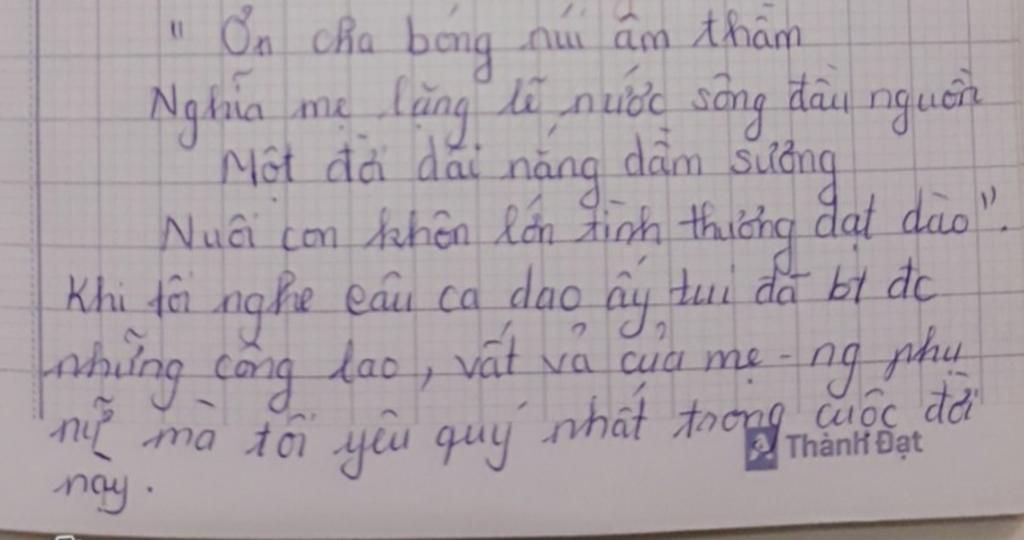 " Ơn cha bóng núi âm thầm
Nghĩa mẹ lặng lẽ nước sông đầu nguồn
Một đời dãi nắng dầm sương
Nuôi con khôn lớn tình thương dạt dào".
Khi tôi nghe câu ca dao ấy tui đã bt đc
những công lao, vất vả của mẹ - ng phụ
nữ mà tôi yêu quý nhất trong cuộc đời
này.
Thành Đạt